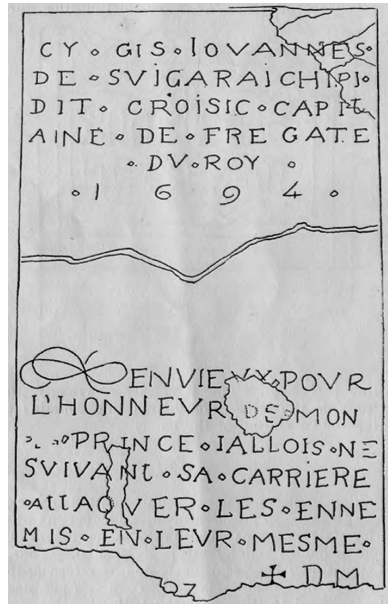 CY ∘ GIS ∘ IOVANNES ∘
DE ∘ SVIGARAICHIPI ∘
DIT ∘ CROISIC ∘ CAPIT
AINE ∘ DE ∘ FREGATE
∘ DV ∘ ROY ∘
∘ 1 6 9 4 ∘
ENVIEVX ∘ POVR
L'HONNEVR DE MON
PRINCE ∘ IALLOIS ∘ NE
SVIVANt ∘ SA ∘ CARRIERE
∘ AttAQVER ∘ LES ∘ ENNE
MIS ∘ EN ∘ LEVR ∘ MESME ∘
✝ D M